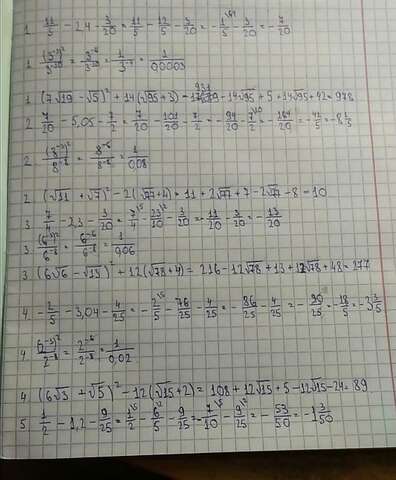 1 11/5 - 2,4 - 3/20 = 11/5 - 12/5 - 3/20 = - 1/5 - 3/20 = - 7/20
1 (3⁻³)²/3⁻¹⁰ = 3⁻⁶/3⁻¹⁰ = 1/3⁻⁴ = 1/0,0003
1 (7√19 - √5)² + 14(√95 + 3) = 931 - 14√95 + 5 + 14√95 + 42 = 978
2 7/20 - 5,05 - 7/2 = 7/20 - 101/20 - 7/2 = - 94/20 - 7/2 = - 164/20 = - 42/5 = -8
2 (8⁻³)²/8⁻⁸ = 8⁻⁶/8⁻⁸ = 1/0,08
2 (√11 + √7)² - 2(√77 + 4) = 11 + 2√77 + 7 - 2√77 - 8 = 10
3 7/4 - 2,3 - 3/20 = 7/4 - 23/10 - 3/20 = - 11/20 - 3/20 = - 13/20
3 (6⁻³)²/6⁻⁸ = 6⁻⁶/6⁻⁸ = 1/0,06
3 (6√6 - √13)² + 12(√78 + 4) = 216 - 12√78 + 13 + 12√78 + 48 = 277
4. - 2/5 - 3,04 - 4/25 = - 2/5 - 76/25 - 4/25 = - 86/25 - 4/25 = - 90/25 = - 18/5 = -3 3/5
4 (2⁻³)²/2⁻⁸ = 2⁻⁶/2⁻⁸ = 1/0,02
4. (6√3 + √5)² - 12(√15 + 2) = 108 + 12√15 + 5 - 12√15 - 24 = 89
5. 1/2 - 1,2 - 9/25 = 1/2 - 6/5 - 9/25 = - 7/10 - 9/25 = - 53/50 = -1 3/50